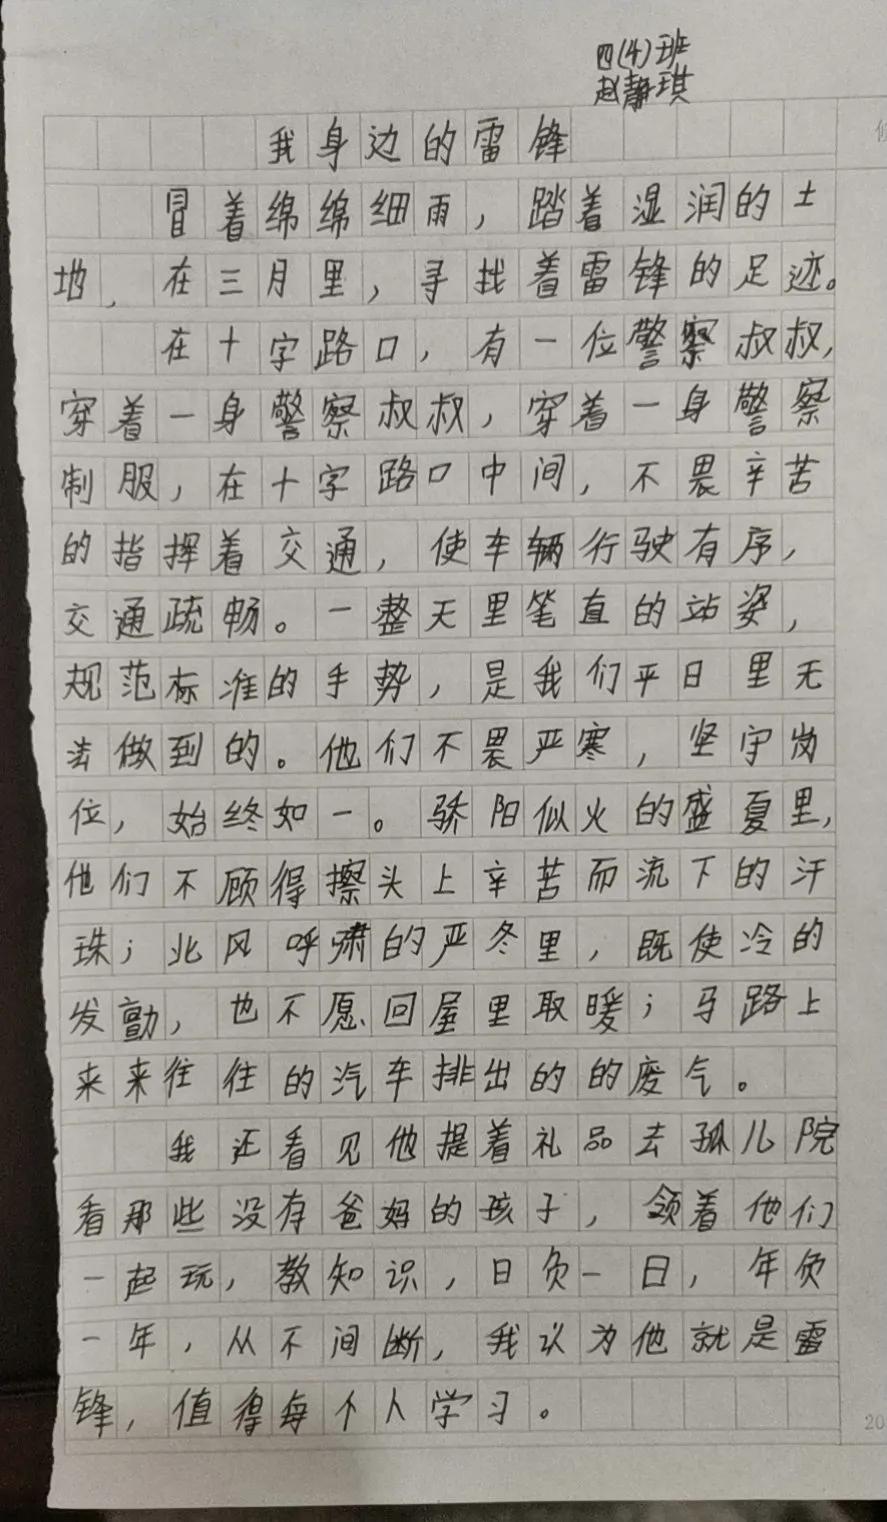 四(4)班
赵静琪
我身边的雷锋
冒着绵绵细雨，踏着湿润的土
地，在三月里，寻找着雷锋的足迹。
在十字路口，有一位警察叔叔，
穿着一身警察叔叔，穿着一身警察
制服，在十字路口中间，不畏辛苦
的指挥着交通，使车辆行驶有序，
交通疏畅。一整天里笔直的站姿，
规范标准的手势，是我们平日里无
法做到的。他们不畏严寒，坚守岗
位，始终如一。骄阳似火的盛夏里，
他们不顾得擦头上辛苦而流下的汗
珠；北风呼啸的严冬里，既使冷的
发颤，也不愿回屋里取暖；马路上
来来往往的汽车排出的的废气。
我还看见他提着礼品去孤儿院
看那些没有爸妈的孩子，领着他们
一起玩，教知识，日负一日，年负
一年，从不间断，我认为他就是雷
锋，值得每个人学习。
20